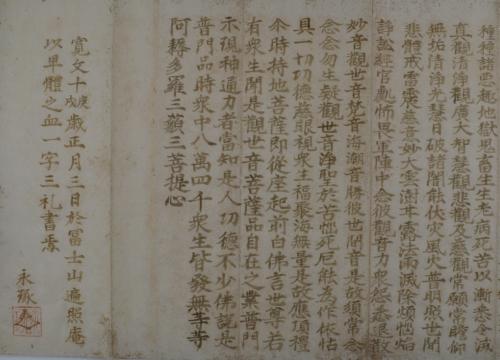 種種諸惡趣地獄畜生生老病死苦以漸悉令滅
真觀清淨觀廣大智慧觀悲觀及慈觀常願常瞻仰
無垢清淨光慧日破諸闇能伏災風火普明照世間
悲體戒雷震慈音妙大雲澍甘露法雨滅除煩惱焰
諍訟經官處怖畏軍陣中念彼觀音力衆怨悉退散
妙音觀世音梵音海潮音勝彼世間音是故須常念
念念勿生疑觀世音淨聖於苦惱死厄能為作依怙
具一切功德慈眼視衆生福聚海無量是故應頂禮
尒時持地菩薩即從座起前白佛言世尊若
有衆生聞是觀世音菩薩品自在之業普門
示現神通力者當知是人功德不少佛說是
普門品時衆中八萬四千衆生皆發無等等
阿耨多羅三藐三菩提心
寛文十庚戌歳正月三日於冨士山遍照庵
以卑體之血一字三礼書焉
永琢